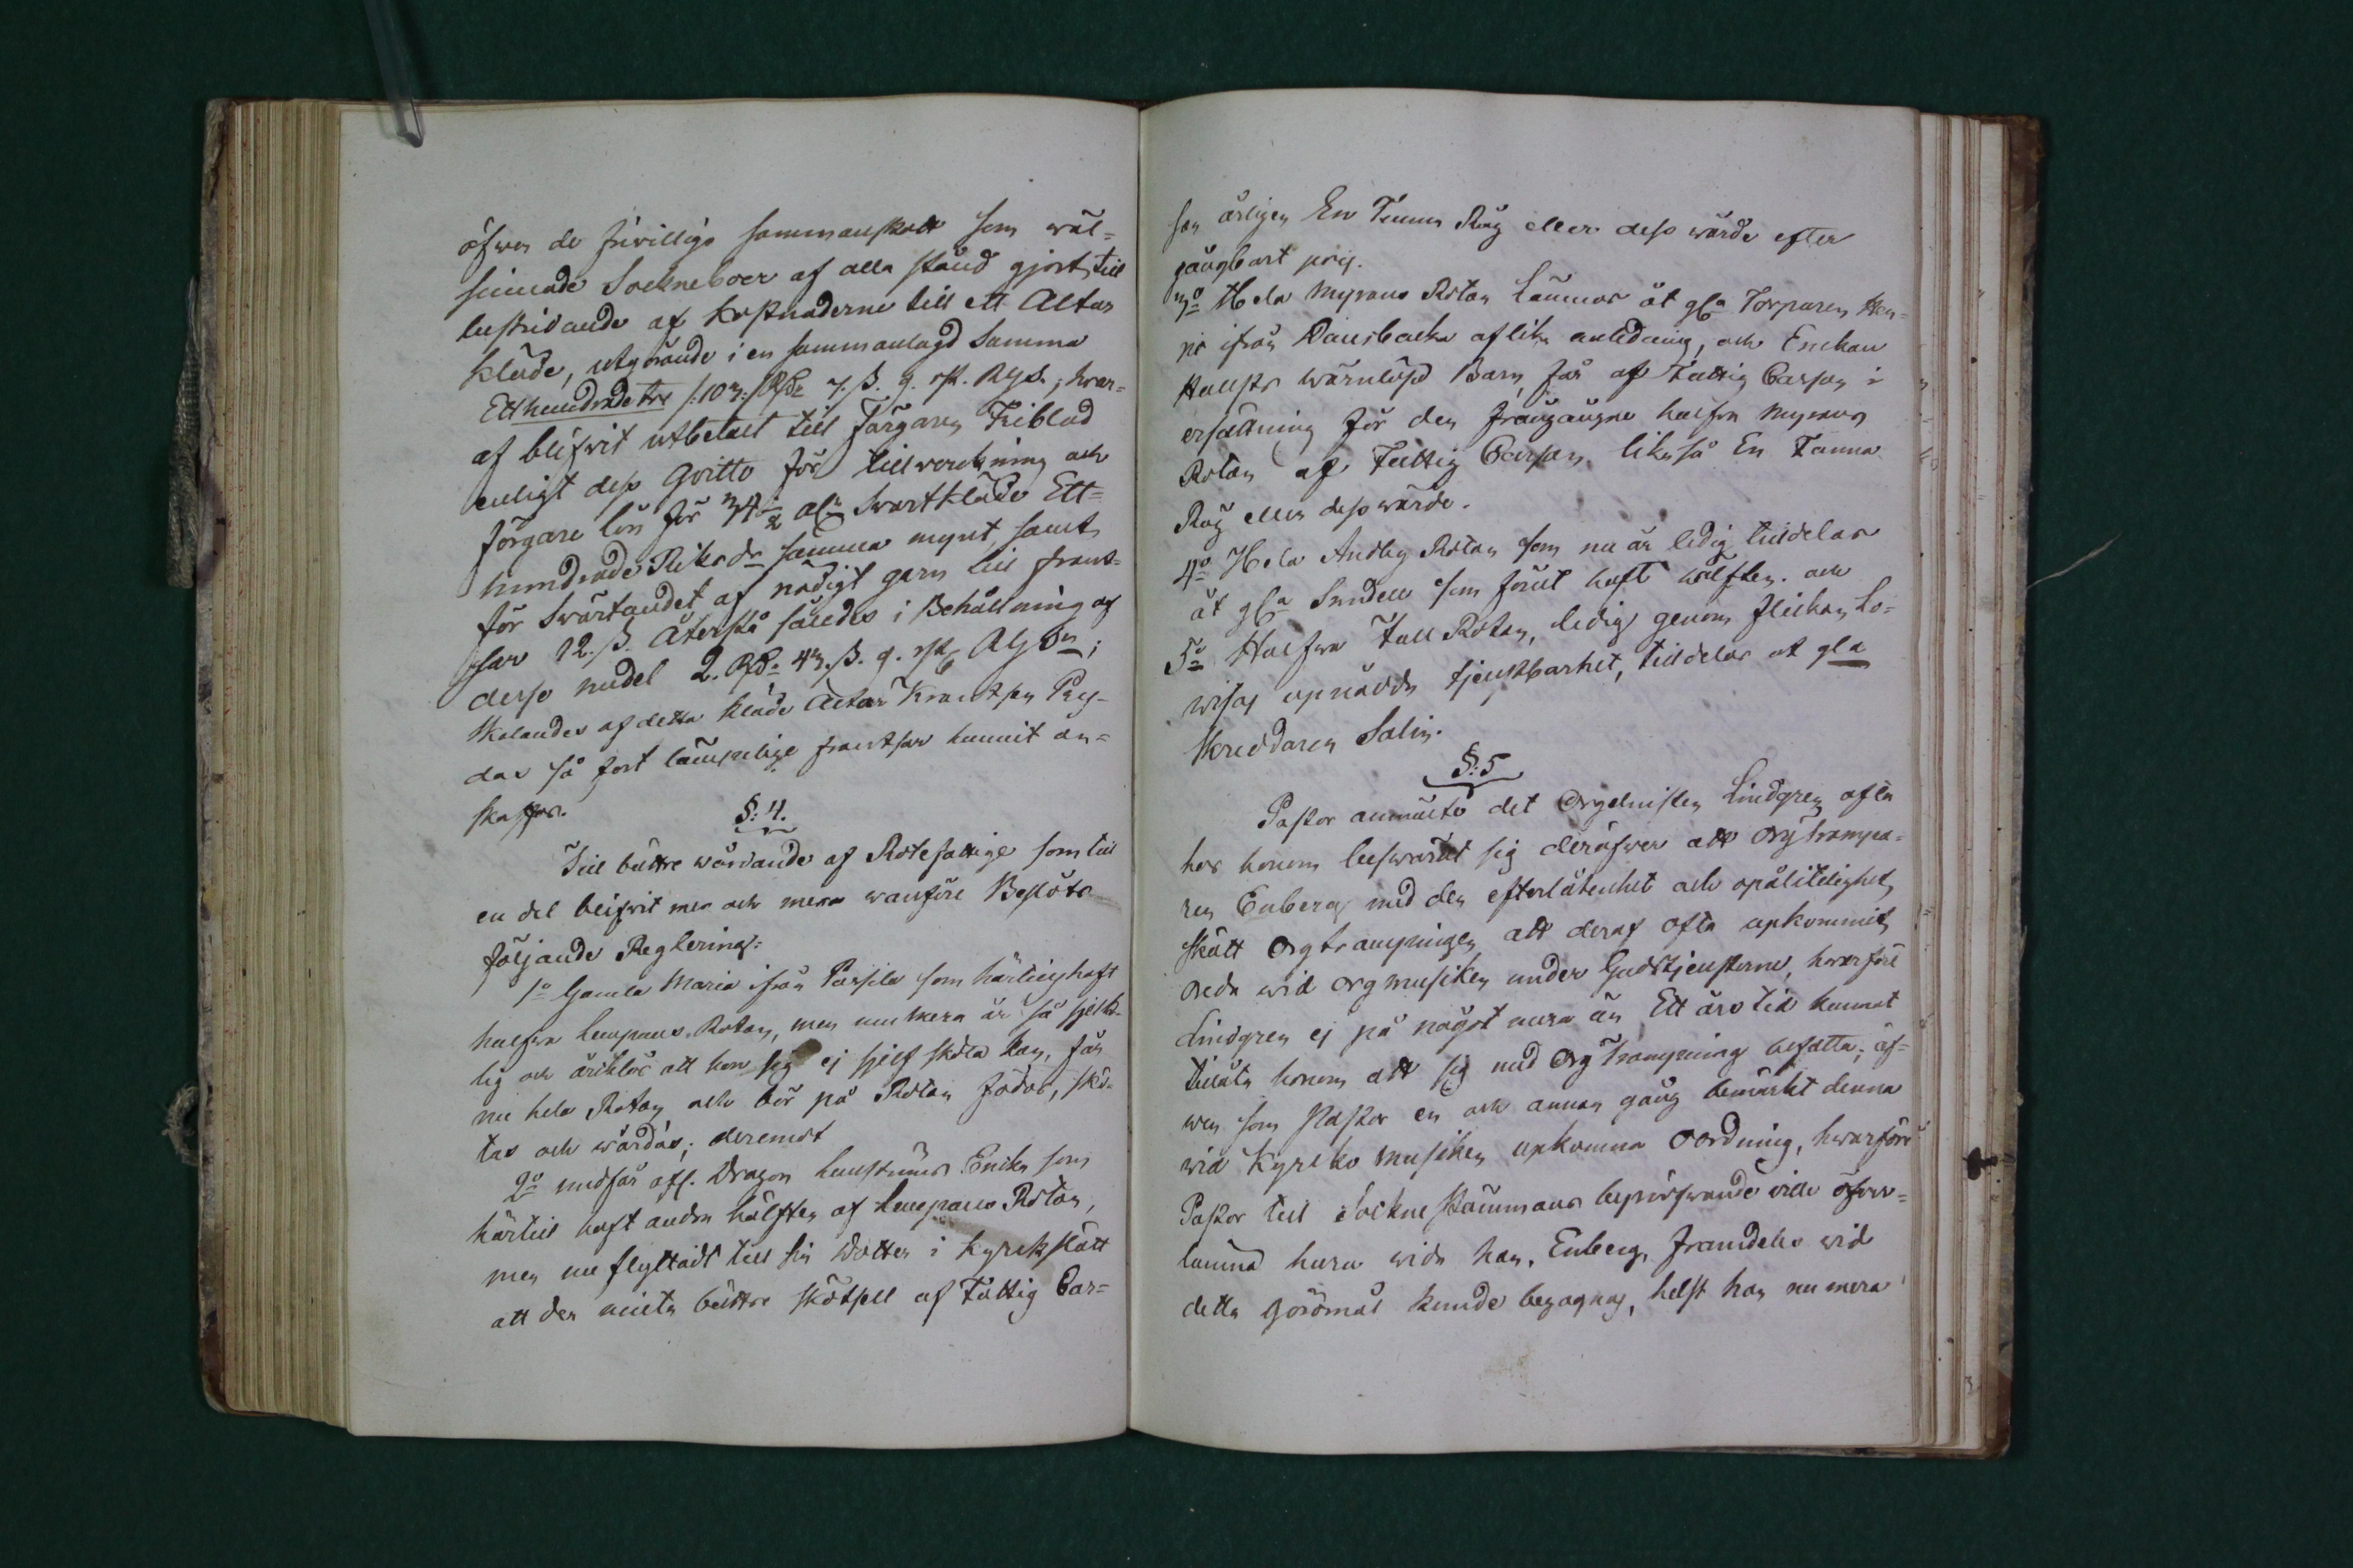 öfwer de friwillige sammanskott som wäl=
sinnade Sockneboer af alla stånd gjort till
bestridande af kostnaderne till ett Altar
kläde, utgörande i en sammanlagd Summa
Etthundradetre /:103:/ Rdr 7. ß. 9. rst. Rgs.; hwar=
af blifwit utbetalt till Färgaren Friblad
enligt dess Qvitto för tillwerkning och
färgare lön för 34½ aln Swart kläde Ett=
hundrade Riksdr samma mynt, samt
för Swärtandet af nödigt garn till frant=
sar 12. ß. Återstå således i Behållning af
desse medel 2. Rdr. 43. ß. 9. rst. Rgsn;
Skolandes af detta kläde Altar Krantsen Pry=
das så fort lämpelige frantsar hunnit an=
skaffas.
§: 4.
Till bättre wårdande af Rotefattige som till
en del blifwit mer och mera wanföre Beslöts
följande Reglering:
1o Gamla Maria ifrån Passila som härtills haft
halfva Lempans Rotan, men nu mera är så sjuk=
lig och ärklös att hon sig ej sjelf sköta kan, får
nu hela Rotan och bör på Rotan födas, skö=
tas och wårdas; deremot
2o undfår afs. Dragon Hustrun Enika som
härtill haft andra hälften af Lempans Rotan,
men nu flyttadt till sin Dotter i Kyrkslätt
att der niuta bättre skötsell af Fattig Cas=
san årligen En Tunna Råg eller dess wärde efter
gångbart pris.
3o Hela Myrans Rotan lämnas åt gla Torparen
ifrån Dansbacka af lika anledning, och Enckan
wärnlöse Barn får af Fattig Cassan i
ersättning för den frångångne halfva Myrans
Rotan af Fattig Cassan likaså En Tunna
Råg eller dess wärde.
4o Hela Andby Rotan som nu är ledig tilldelas
åt gla Sundell som förut haft hälften. och
5o Halfva Tall Rotan, ledig genom flickan Lo=
wisas upnådde tjenstbarhet, tilldelas åt gla
Skreddaren Salin.
§: 5
Pastor anmälte det Orgelnisten Lindgren ofta
hos honom beswärat sig deröfwer att Orgtrampa=
ren Enberg med den efterlåtenhet och opålitelighet
skött Orgtrampningen att deraf ofta upkommit
oreda wid Orgmusiken under Gudstjensterne, hwarföre
Lindgren ej på något mera än Ett års tid kunnat
tillåta honom att sig med Org Trampning befatta; äf=
wen som Pastor en och annan gång bemärkt denna
wid Kyrko Musiken upkomna oordning, hwarföre
Pastor till Sockne Stämmans bepröfwande wille öfwer=
lämna huru wida han, Enberg, framdeles wid
detta göromål kunde begagnas, helst han nu mera